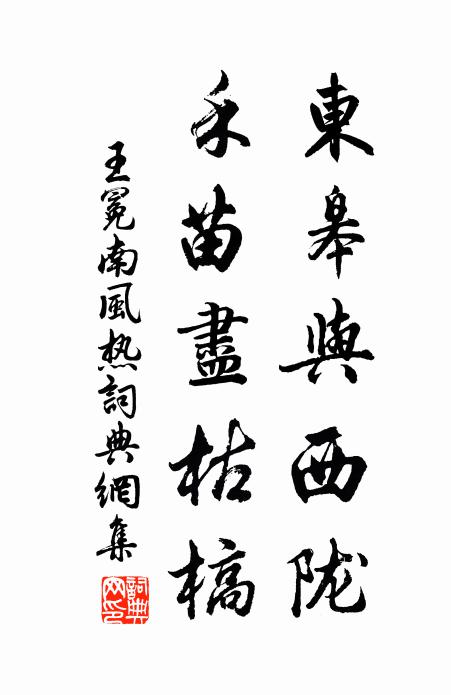 東皋與西陇
禾苗盡枯槁
王冕南風热詞典網集
詞典网印